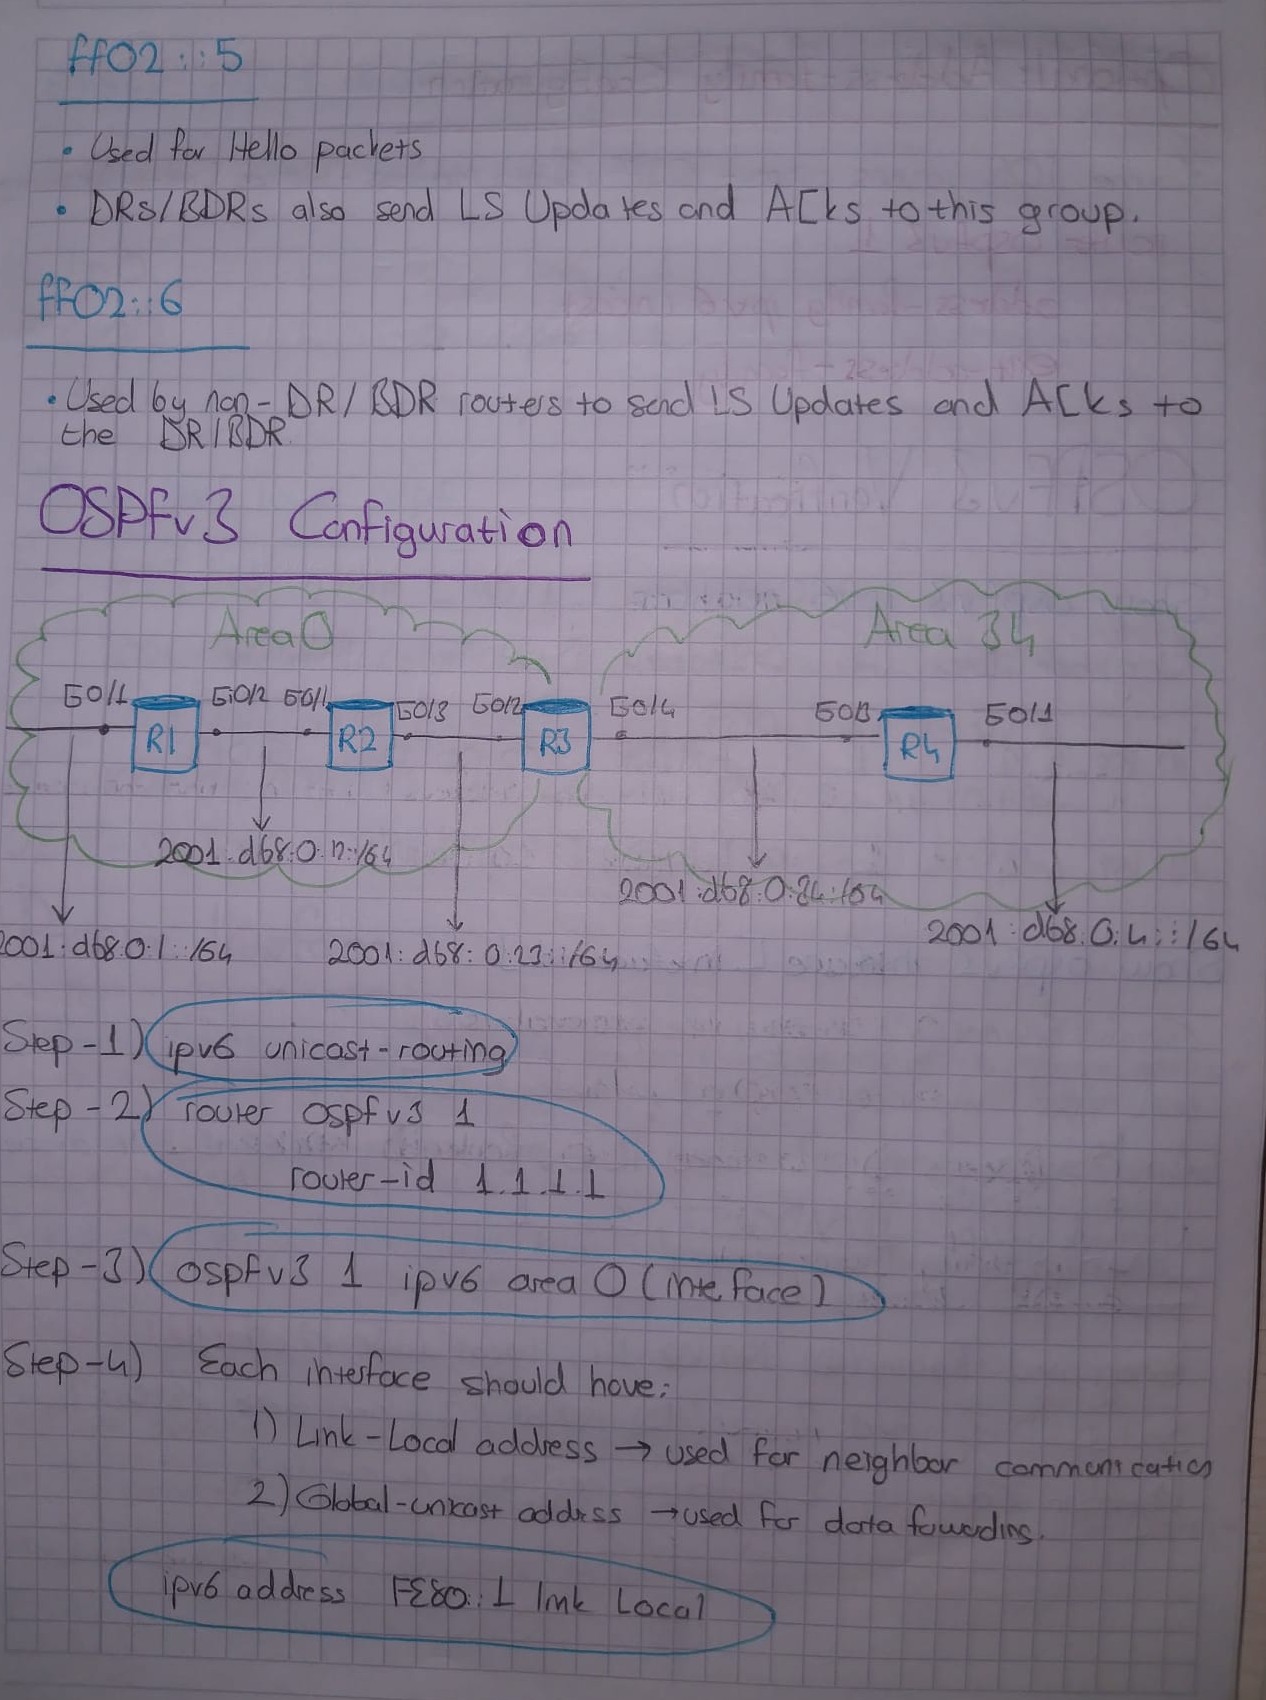 ff02::5
• Used for Hello packets
• DRs/BDRs also send LS Updates and ACks to this group.
ff02::6
• Used by non-DR/BDR routers to send LS Updates and ACks to
the DR/BDR
OSPFv3 Configuration
Area 0
Area 34
G0/1
R1
G0/2
G0/1
R2
G0/3
G0/2
R3
G0/4
G0/3
R4
G0/1
2001:db8:0:12::/64
2001:db8:0:34::/64
2001:db8:0:1::/64
2001:db8:0:23::/64
2001:db8:0:4::/64
Step-1) ipv6 unicast-routing
Step-2) router ospfv3 1
router-id 1.1.1.1
Step-3) ospfv3 1 ipv6 area 0 (interface)
Step-4) Each interface should have:
1) Link-Local address → used for neighbor communication
2) Global-unicast address → used for data fowarding.
ipv6 address FE80::1 link Local